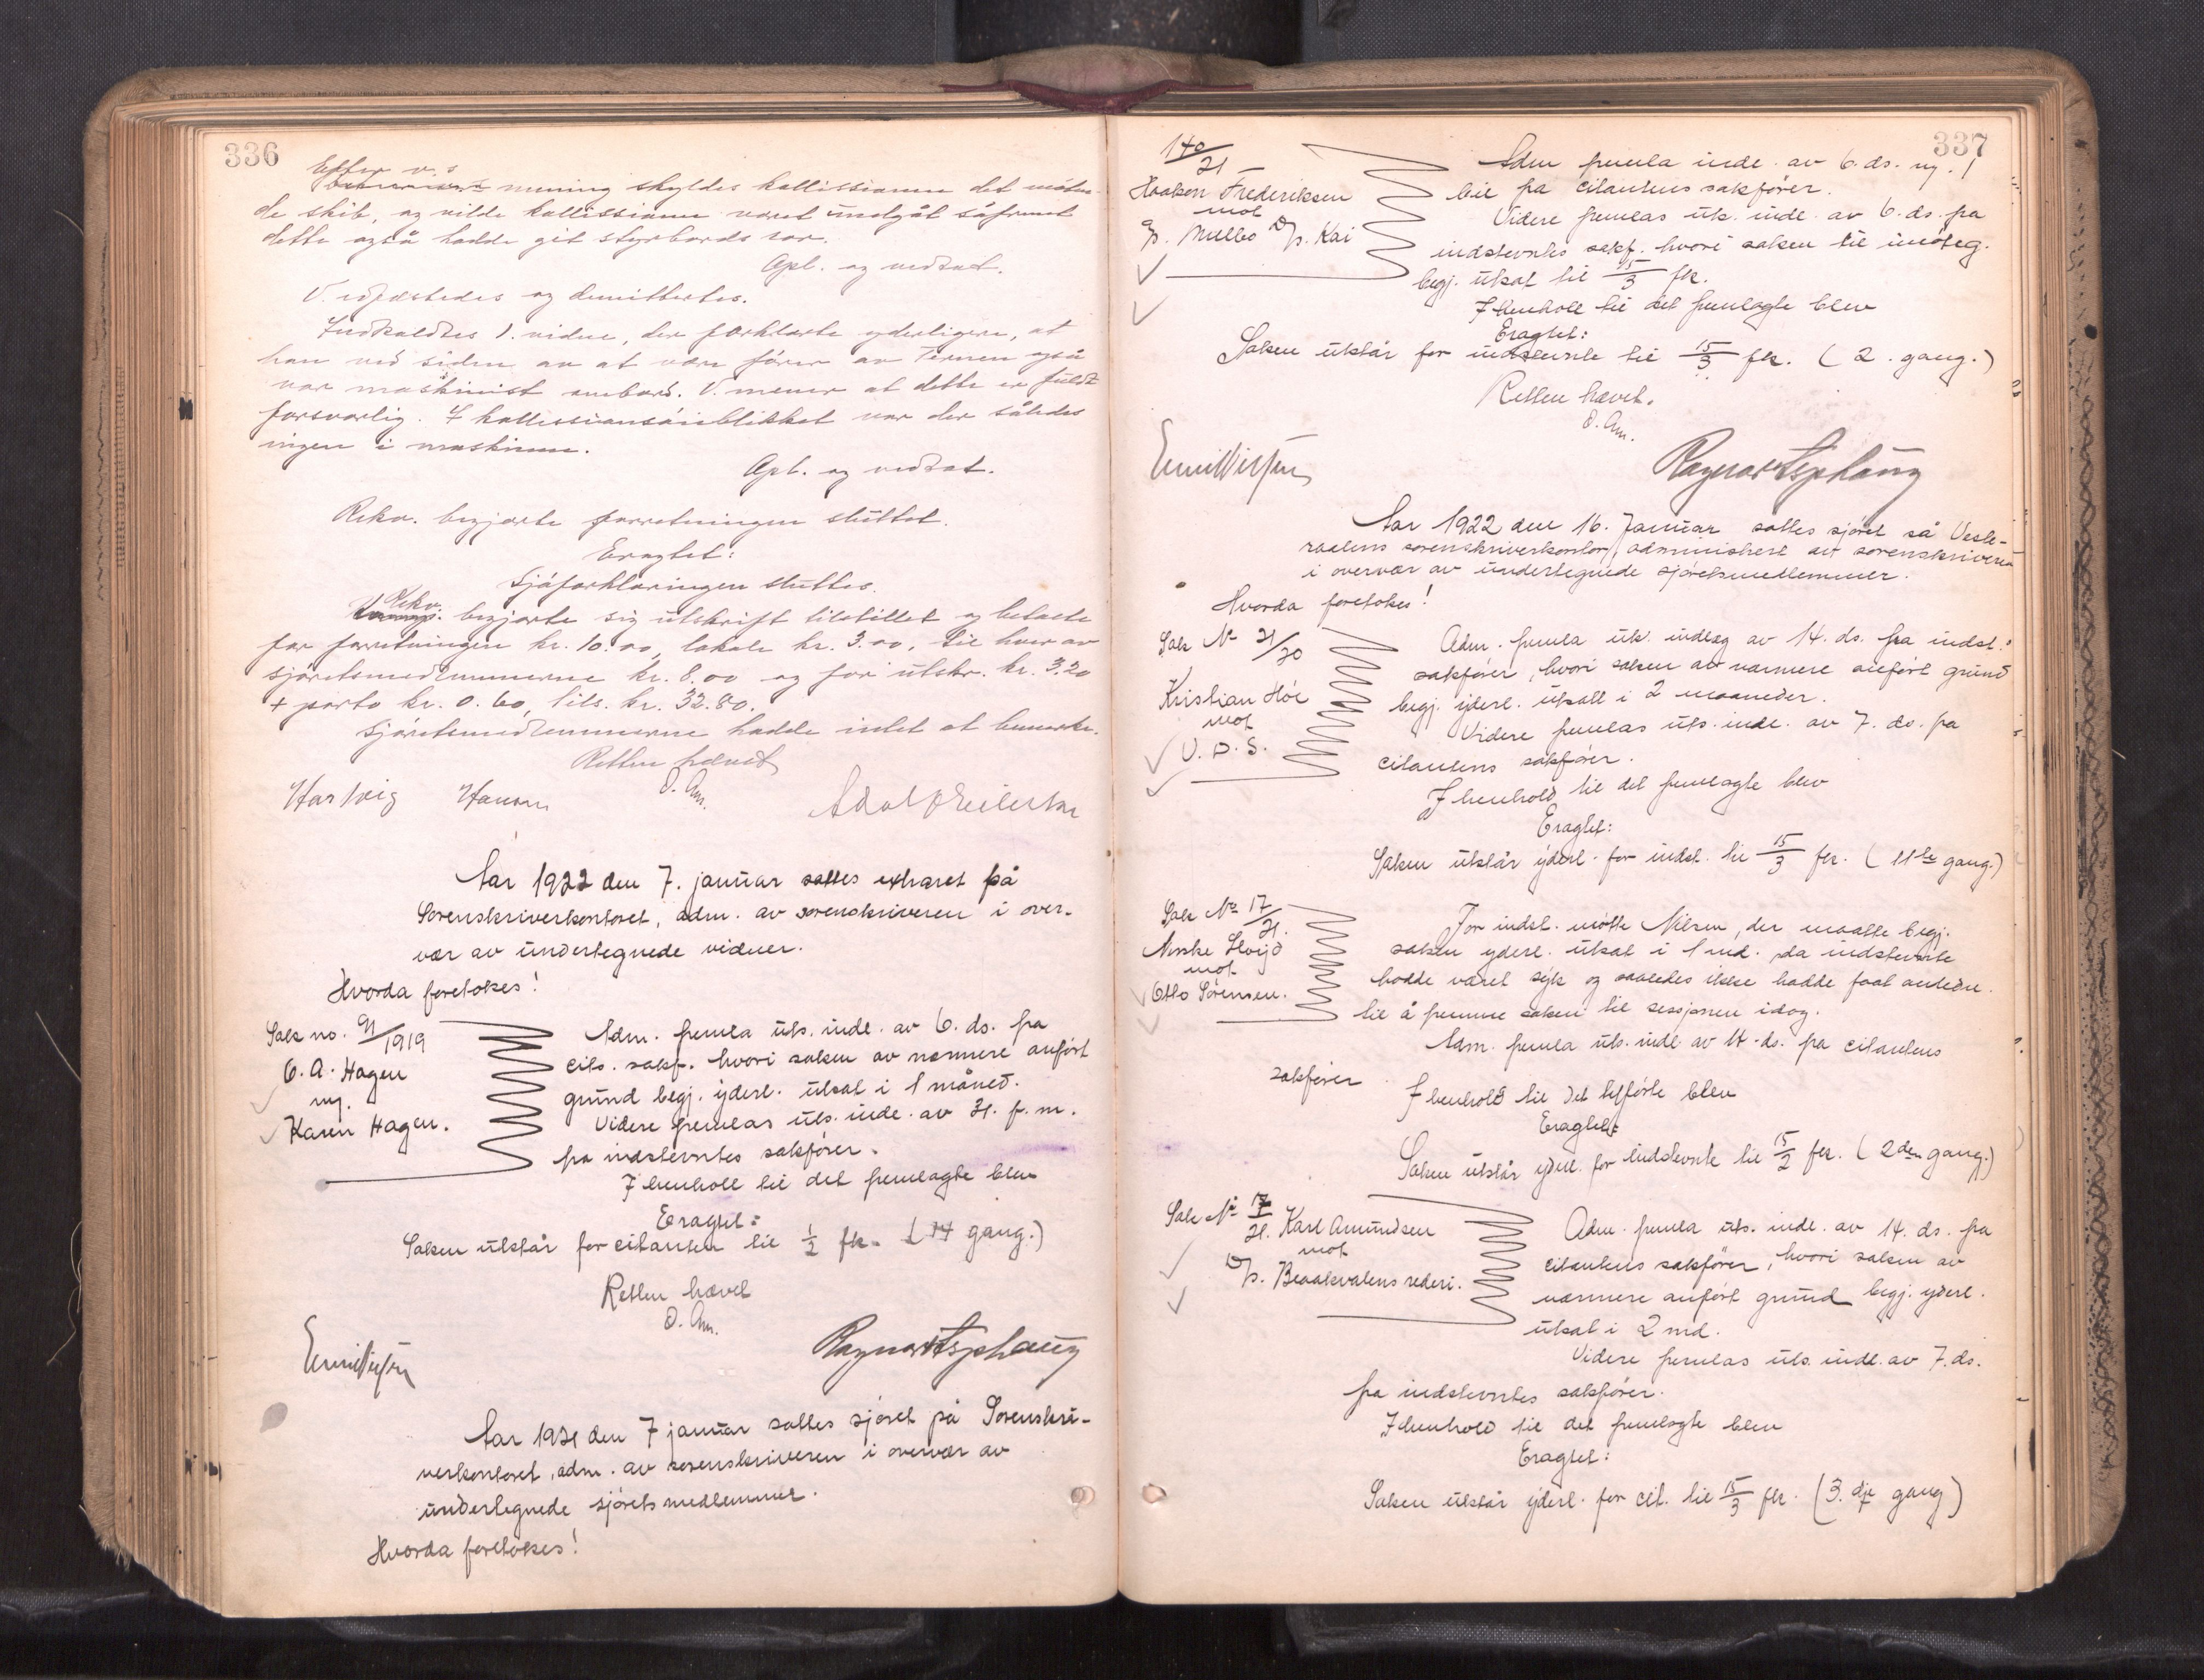 336
Efter v.s
mening skyldes kollissionen det møten-
de skib, og vilde kollissionen været undgåt såfremt
dette også hadde git styrbords ror.
Opl. og vedtat.
V. edfæstedes og demittertes.
Indkaldtes 1. vidne, der forklarte yderligere, at
han ved siden av at være fører av Ternen også
var maskinist ombord. V. mener at dette er fuldt
forsvarlig. I kollissionsøieblikket var der således
ingen i maskinen.
Opl. og vedtat.
Rekv. begjærte forretningen sluttet.
Eragtet:
Sjøforklaringen sluttes.
Rekv. begjærte sig utskrift tilstillet og betalte
for forretningen kr. 10.00, lokale kr. 3.00, til hver av
sjøretsmedlemmerne kr. 8.00 og for utskr. kr. 3.20
+ porto kr. 0.60, tils. kr. 32.80.
Sjøretsmedlemmerne hadde intet at bemerke.
Retten hævet
O. Am.
Hartvig Hansen
Adolf Eilertsen
Aar 1922 den 7. januar sattes extraret på
Sorenskriverkontoret, adm. av sorenskriveren i over-
vær av undertegnede vidner.
Hvorda foretokes!
Sak no. 91/1919
O. A. Hagen
mj.
Karen Hagen.
Adm. fremla uts. indl. av 6. ds. fra
cits. sakf. hvori saken av nærmere anført
grund begj. yderl. utsat i 1 måned.
Videre fremlas uts. indl. av 31. f. m.
fra indstevntes sakfører.
I henhold til det fremlagte blev
Eragtet:
Saken utstår for citanten til 1/2 fk. (14 gang.)
Retten hævet
O. Am.
Emil Nilsen
Ragnar Asphaug
Aar 1921 den 7 januar sattes sjøret på Sorenskri-
verkontoret, adm. av sorenskriveren i overvær av
undertegnede sjøretsmedlemmer.
Hvorda foretokes!
337
140/21
Haakon Frederiksen
mot
D/s. Kai
Adm fremla indl. av 6. ds. m. 1
bil fra citantens sakfører.
Videre fremlas uts. indl. av 6. ds. fra
indstevntes sakf. hvori saken til imøteg.
begj. utsat til 15/3 fk.
I henhold til det fremlagte blev
Eragtet:
Saken utstår for indstevnte til 15/3 fk. (2. gang.)
Retten hævet.
O. Am.
Emil Nilsen
Ragnar Asphaug
Aar 1922 den 16. januar sattes sjøret på Veste-
raalens sorenskriverkontor, administrert av sorenskriveren
i overvær av undertegnede sjøretsmedlemmer.
Hvorda foretokes!
Sak No 21/20
Kristian Høe
mot
V. D. S.
Adm. fremla uts. indlæg av 14. ds. fra indst.s
sakfører, hvori saken av nærmere anført grund
begj. yderl. utsatt i 2 maaneder.
Videre fremlas uts. indl. av 7. ds. fra
citantens sakfører.
I henhold til det fremlagte blev
Eragtet:
Saken utstår yderl. for indst. til 15/3 fk. (11te gang.)
Sak No 17/21.
Norske Lloyd
mot
Otto Sørensen.
For indst. møtte Nilsen, der maatte begj.
saken yderl. utsat i 1 md. da indstevnte
hadde været syk og saaledes ikke hadde faat anledn.
til å fremme saken til sessjonen idag.
Adm. fremla uts. indl. av 14. ds. fra citantens
sakfører
I henhold til det tilførte blev
Eragtet:
Saken utstår yderl. for indstevnte til 15/2 fk. (2den gang.)
Sak No 7/21. Karl Amundsen
mot
D/s. Beaakvalens rederi.
Adm. fremla uts. indl. av 14. ds. fra
citantens sakfører, hvori saken av
nærmere anført grund begj. yderl.
utsat i 2 md.
Videre fremlas uts. indl. av 7. ds.
fra indstevntes sakfører.
I henhold til det fremlagte blev
Eragtet:
Saken utstår yderl. for cit. til 15/3 fk. (3. dje gang)